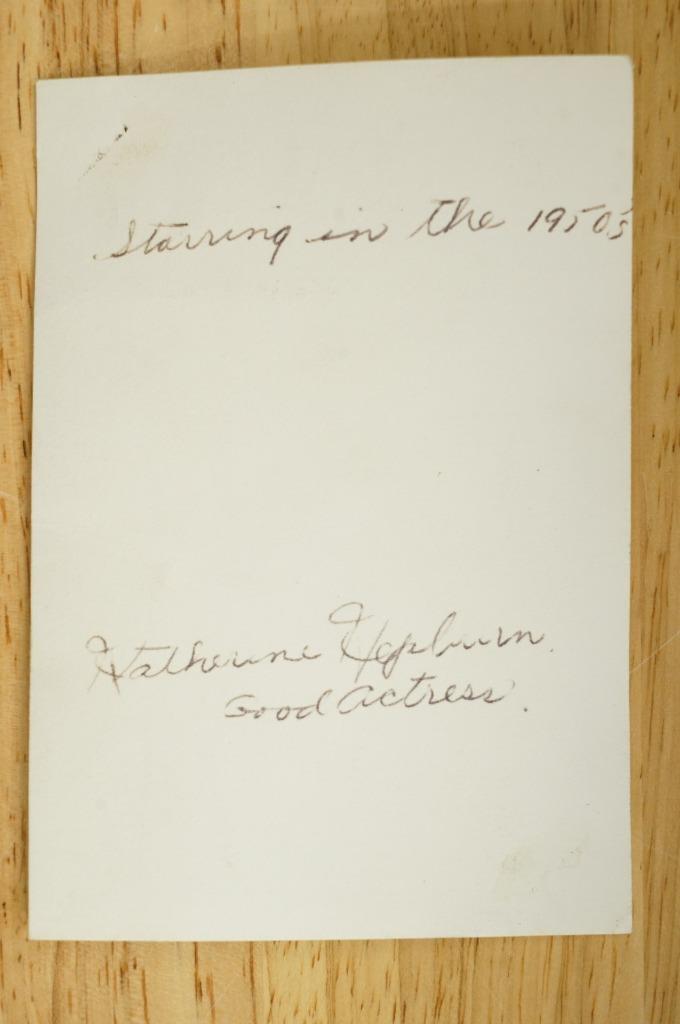 Starring in the 1950's
Katherine Hepburn.
Good Actress.